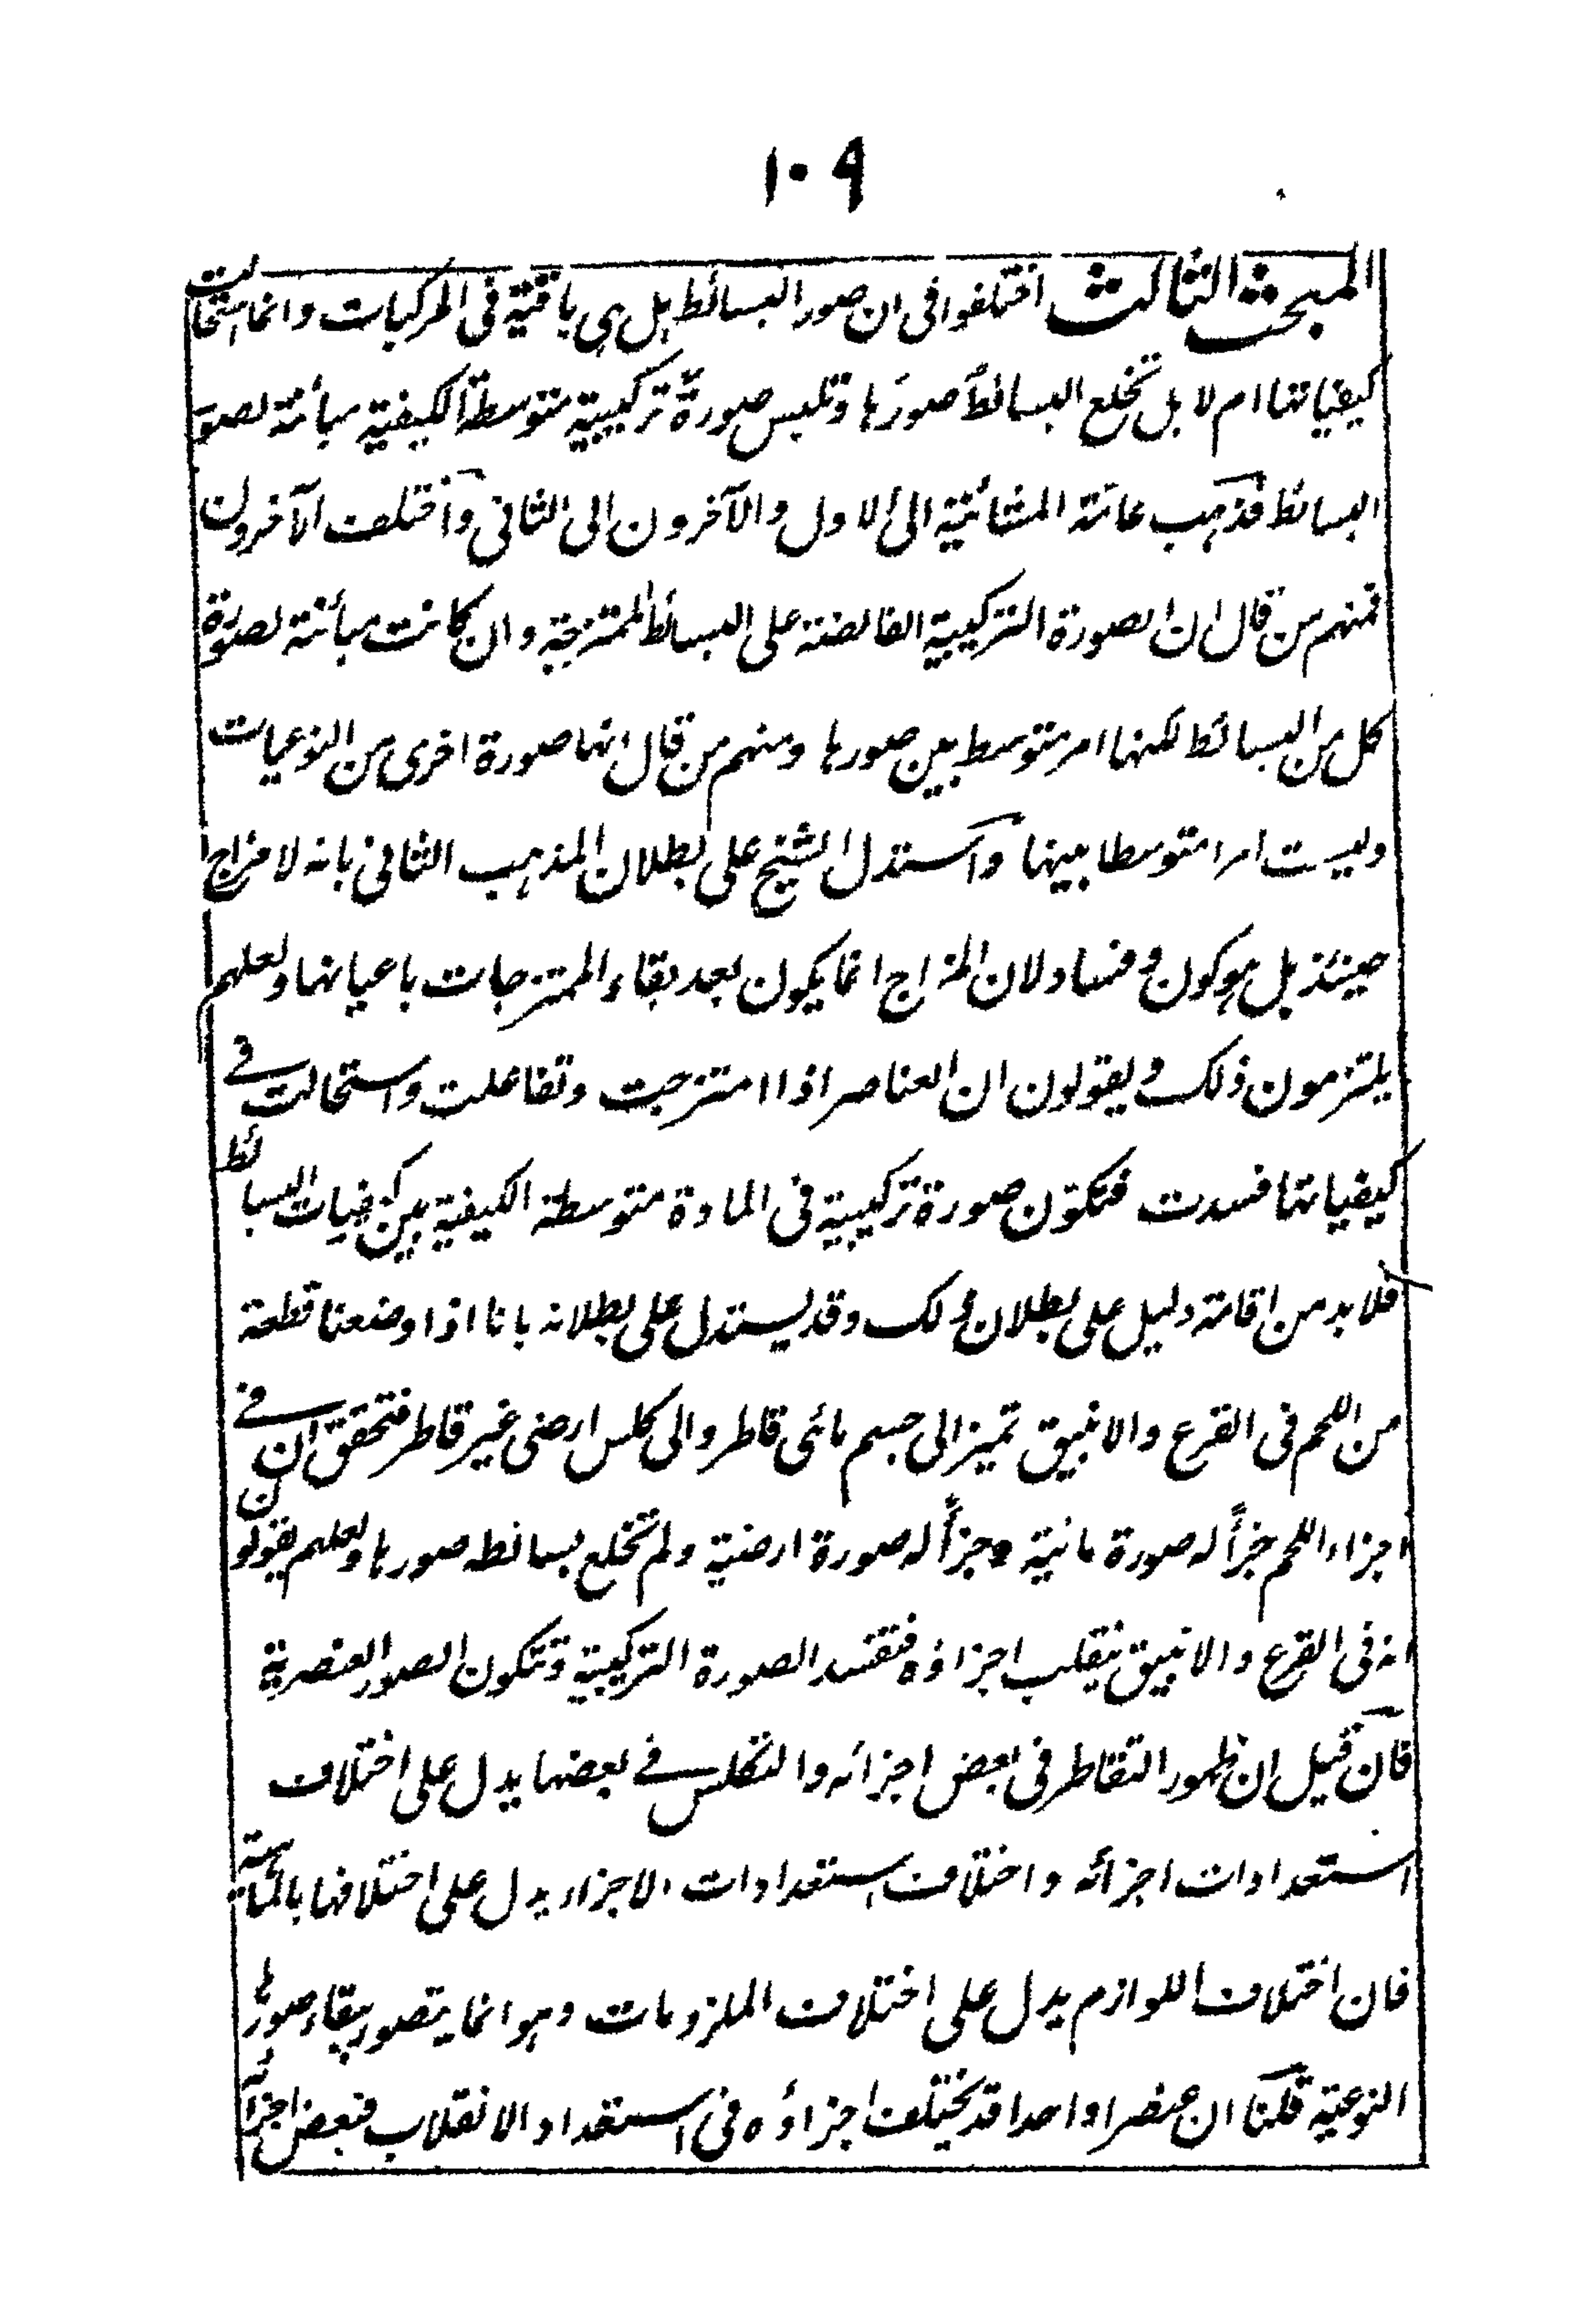 ١٠٩
المبحث الثالث اختلفوا فى ان صور البسائط هل هى باقية فى المركبات وانما استحالت
كيفياتها ام لا بل تخلع البسائط صورها وتلبس صورة تركيبية متوسطة الكيفية مبائنة لصور
البسائط فذهب عامة المشائية الى الاول والآخرون الى الثانى واختلف الآخرون
فمنهم من قال ان الصورة التركيبية الفائضة على البسائط الممتزجة وان كانت مبائنة لصورة
كل من البسائط لكنها امر متوسط بين صورها ومنهم من قال انها صورة اخرى من النوعيات
وليست امرا متوسطا بينها واستدل الشيخ على بطلان المذهب الثانى بانه لا مزاج
حينئذ بل هو كون وفساد لان المزاج انما يكون بعد بقاء الممتزجات باعيانها ولعلهم
يلتزمون ذلك ويقولون ان العناصر اذا امتزجت وتفاعلت واستحالت فى
كيفياتها فسدت فتكون صورة تركيبية فى المادة متوسطة الكيفية بين كيفيات البسائط
فلا بد من اقامة دليل على بطلان ذلك وقد يستدل على بطلانه بانا اذا وضعنا قطعة
من اللحم فى القرع والانبيق تميز الى جسم مائى قاطر والى كلس ارضى غير قاطر فتحقق ان فى
اجزاء اللحم جزأً له صورة مائية وجزأً له صورة ارضية ولم تخلع بسائطه صورها ولعلهم يقولون
انه فى القرع والانبيق ينقلب اجزاؤه فتفسد الصورة التركيبية وتتكون الصور العنصرية
فان قيل ان ظهور التقاطر فى بعض اجزائه والتكلس فى بعضها يدل على اختلاف
استعدادات اجزائه واختلاف استعدادات الاجزاء يدل على اختلافها بالماهية
فان اختلاف اللوازم يدل على اختلاف الملزومات وهو انما يتصور ببقاء صورها
النوعية قلنا ان عنصرا واحدا قد يختلف اجزاؤه فى استعداد الانقلاب فبعض اجزائه